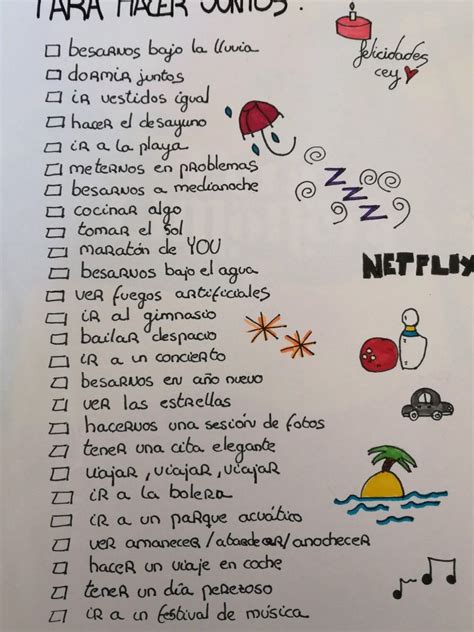 PARA HACER JUNTOS:
felicidades
cey
besarnos bajo la lluvia
dormir juntos
ir vestidos igual
hacer el desayuno
ir a la playa
meternos en problemas
besarnos a medianoche
cocinar algo
tomar el sol
maratón de YOU
besarnos bajo el agua
ver fuegos artificiales
ir al gimnasio
bailar despacio
ir a un concierto
besarnos en año nuevo
ver las estrellas
hacernos una sesión de fotos
tener una cita elegante
viajar, viajar, viajar
ir a la bolera
ir a un parque acuático
ver amanecer/atardecer/anochecer
hacer un viaje en coche
tener un día perezoso
ir a un festival de música
ZZZ
ZZZ
NETFLIX